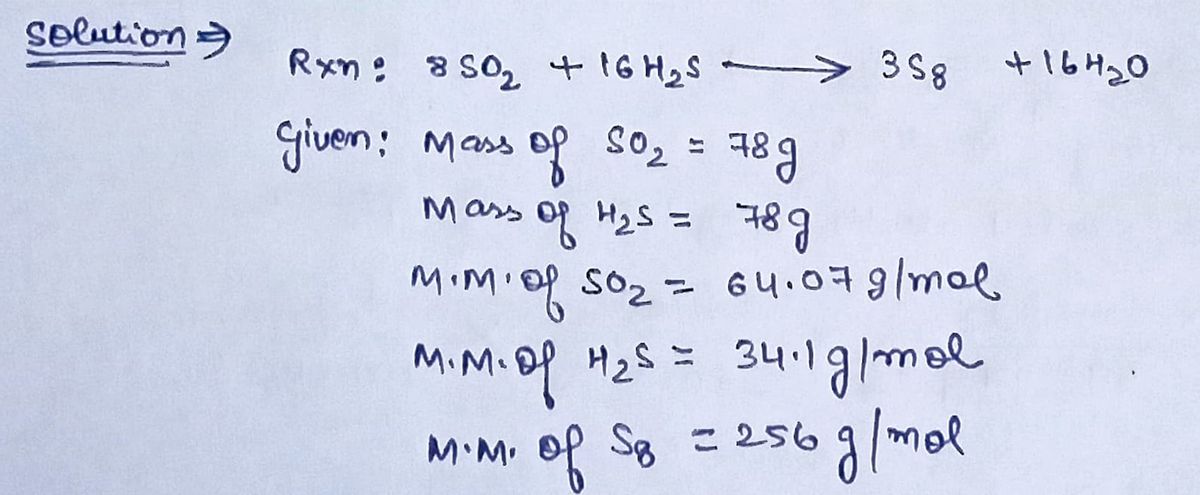 Solution ⇒
Rxn: 8 SO₂ + 16 H₂S ⟶ 3 S₈ + 16 H₂O
Given: Mass of SO₂ = 78g
Mass of H₂S = 78g
M.M. of SO₂ = 64.07 g/mol
M.M. of H₂S = 34.1 g/mol
M.M. of S₈ = 256 g/mol